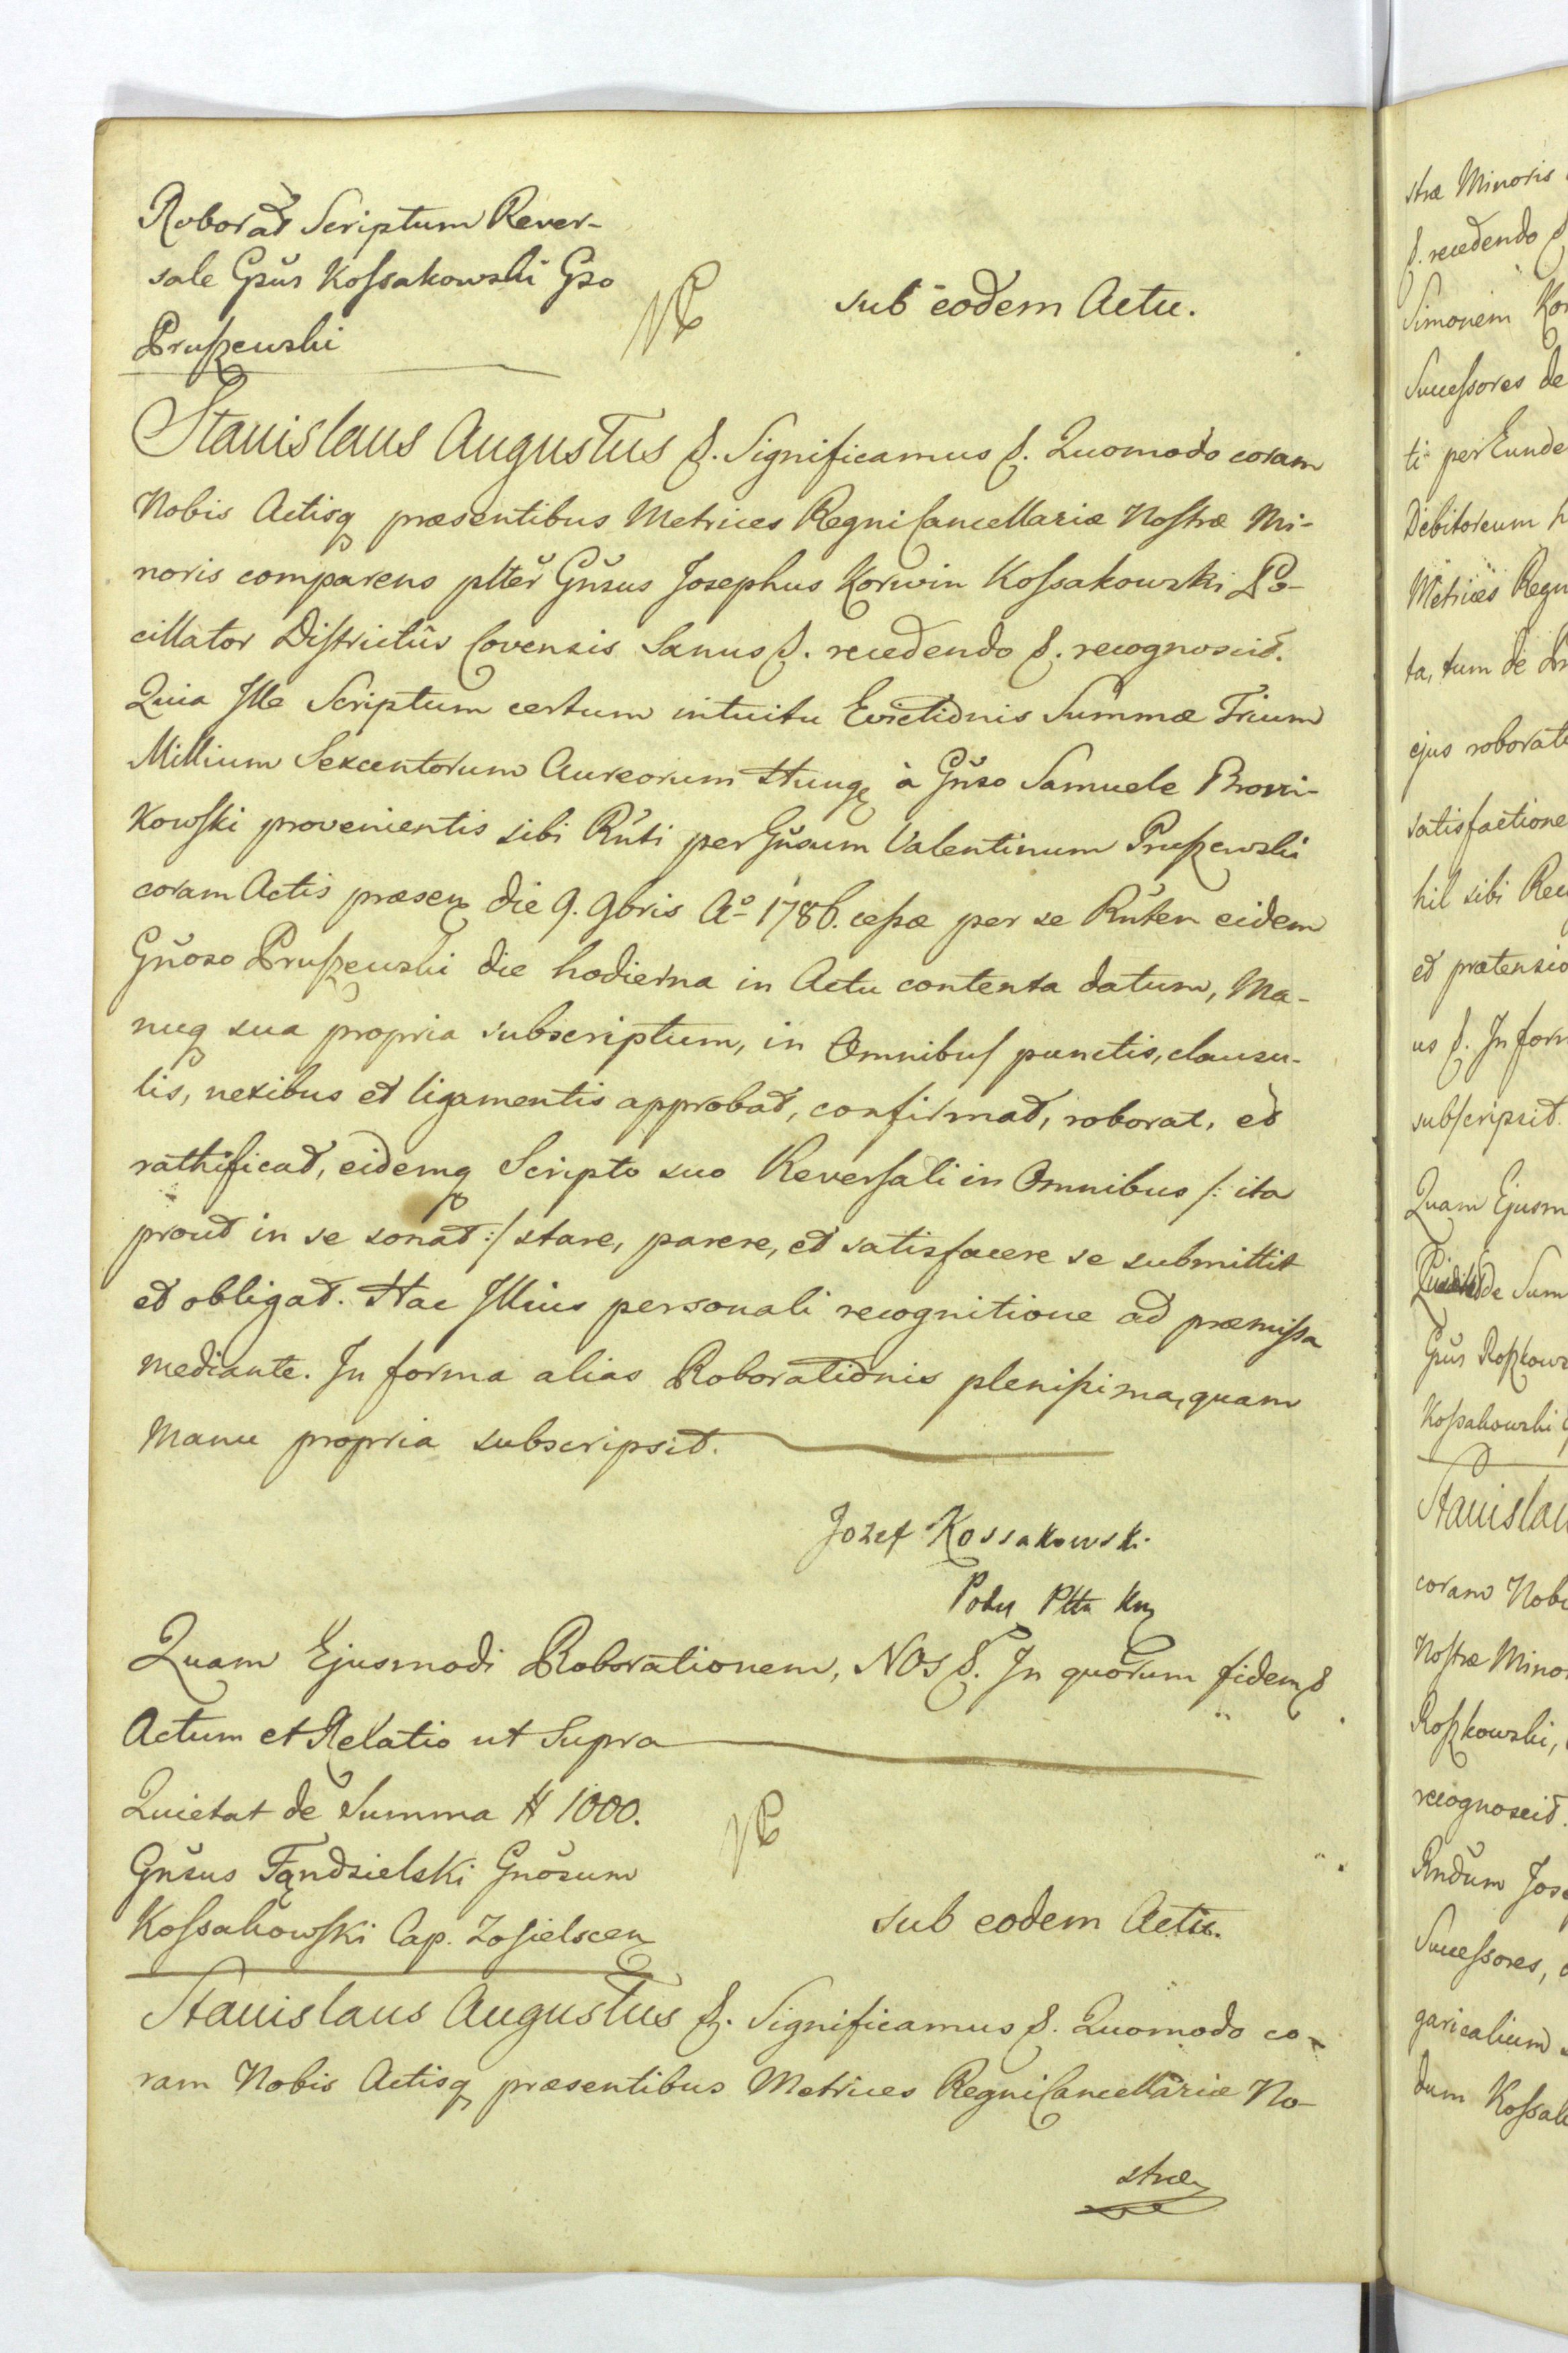 Roborat Scriptum Rever-
sale Gsus Kossakowski Gso
Pruszewski
sub eodem Actu.
Stanislaus Augustus &. Significamus &. Quomodo coram
Nobis Actisq praesentibus Metrices Regni Cancellariæ Nostræ Mi-
noris comparens plter Gnsus Josephus Korwin Kossakowski Po-
cillator Districtûs Covensis Sanus &. recedendo &. recognoscit.
Quia Ille Scriptum certum intuitu Evictionis Summæ Trium
Millium Sexcentorum Aureorum Hung à Gnso Samuele Broni-
kowski provenientis sibi Rnti per Gnsum Valentinum Pruszewski
coram Actis præsen die 9. 9bris Aº 1786. cessæ per se Rnten eidem
Gnoso Pruszewski die hodierna in Actu contenta datum, Ma-
nuq sua propria subscriptum, in Omnibus punctis, clausu-
lis, nexibus et ligamentis approbat, confirmat, roborat, et
rathificat, eidemq Scripto suo Reversali in Omnibus /: ita
prout in se sonat :/ stare, parere, et satisfacere se submittit
et obligat. Hac Illius personali recognitione ad præmissa
mediante. In forma alias Roborationis plenissima, quam
Manu propria subscripsit.
Jozef Kossakowski
Quam Ejusmodi Roborationem, NOS &. In quorum fidem &
Actum et Relatio ut Supra
Quietat de Summa # 1000.
Gnsus Fąndzielski Gnosum
Kossakowski Cap. Zosielscen
sub eodem Actu.
Stanislaus Augustus &. Significamus &. Quomodo co-
ram Nobis Actisq praesentibus Metrices Regni Cancellariæ No-
stræ
stræ Minoris
&. recedendo &
Simonem
Successores de
ti per Eunde
Debitoreum
Metrices Regn
ta, tum de
ejus roborat
satisfactione
hil sibi Rec
et prætensio
us &. In for
subscripsit.
Quam Ejusm
de Sum
Gsus Roszkows
Kossakowski
Stanislau
coram Nobi
Nostræ Mino
Roszkowski,
recognoscit.
Rndum Jos
Successores,
garicalium
dum Kossak